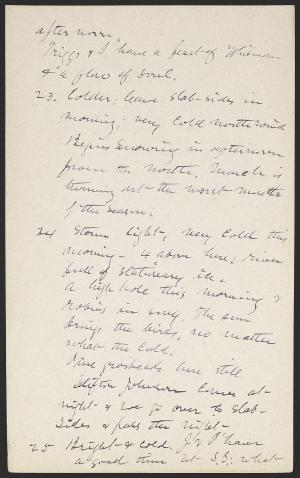 after noon.
Triggs & I have a feast of Whitman
& a flow of soul.
23. Colder; leave Slab-sides in
morning; very cold north wind
Begins snowing in afternoon
from the north. March is
turning out the worst month
of the season.
24 Storm light, very cold this
morning - 4 above here; river
full of stationary ice.
A high hole this morning &
robins in song. The sun
brings the birds, no matter
what the cold.
Pine grosbeaks here still
Clifton Johnson comes at
night & we go over to Slab-
Sides & pass the night.
25 Bright & cold. J & I have
a good time at S.S.; what